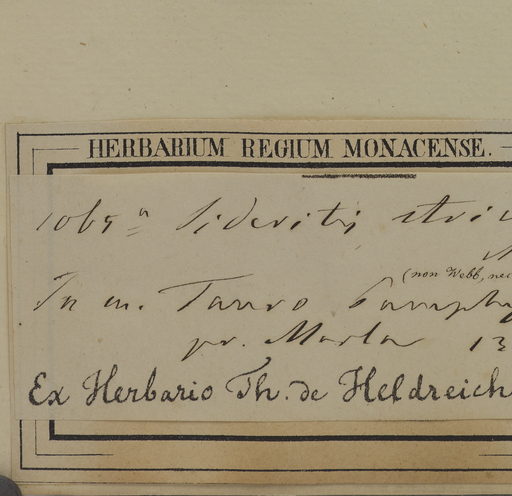 HERBARIUM REGIUM MONACENSE.
1065 a Sideritis stric
(non Webb, nec
In m. Tauro Pamphy
pr. Marla 13
Ex Herbario Th. de Heldreich